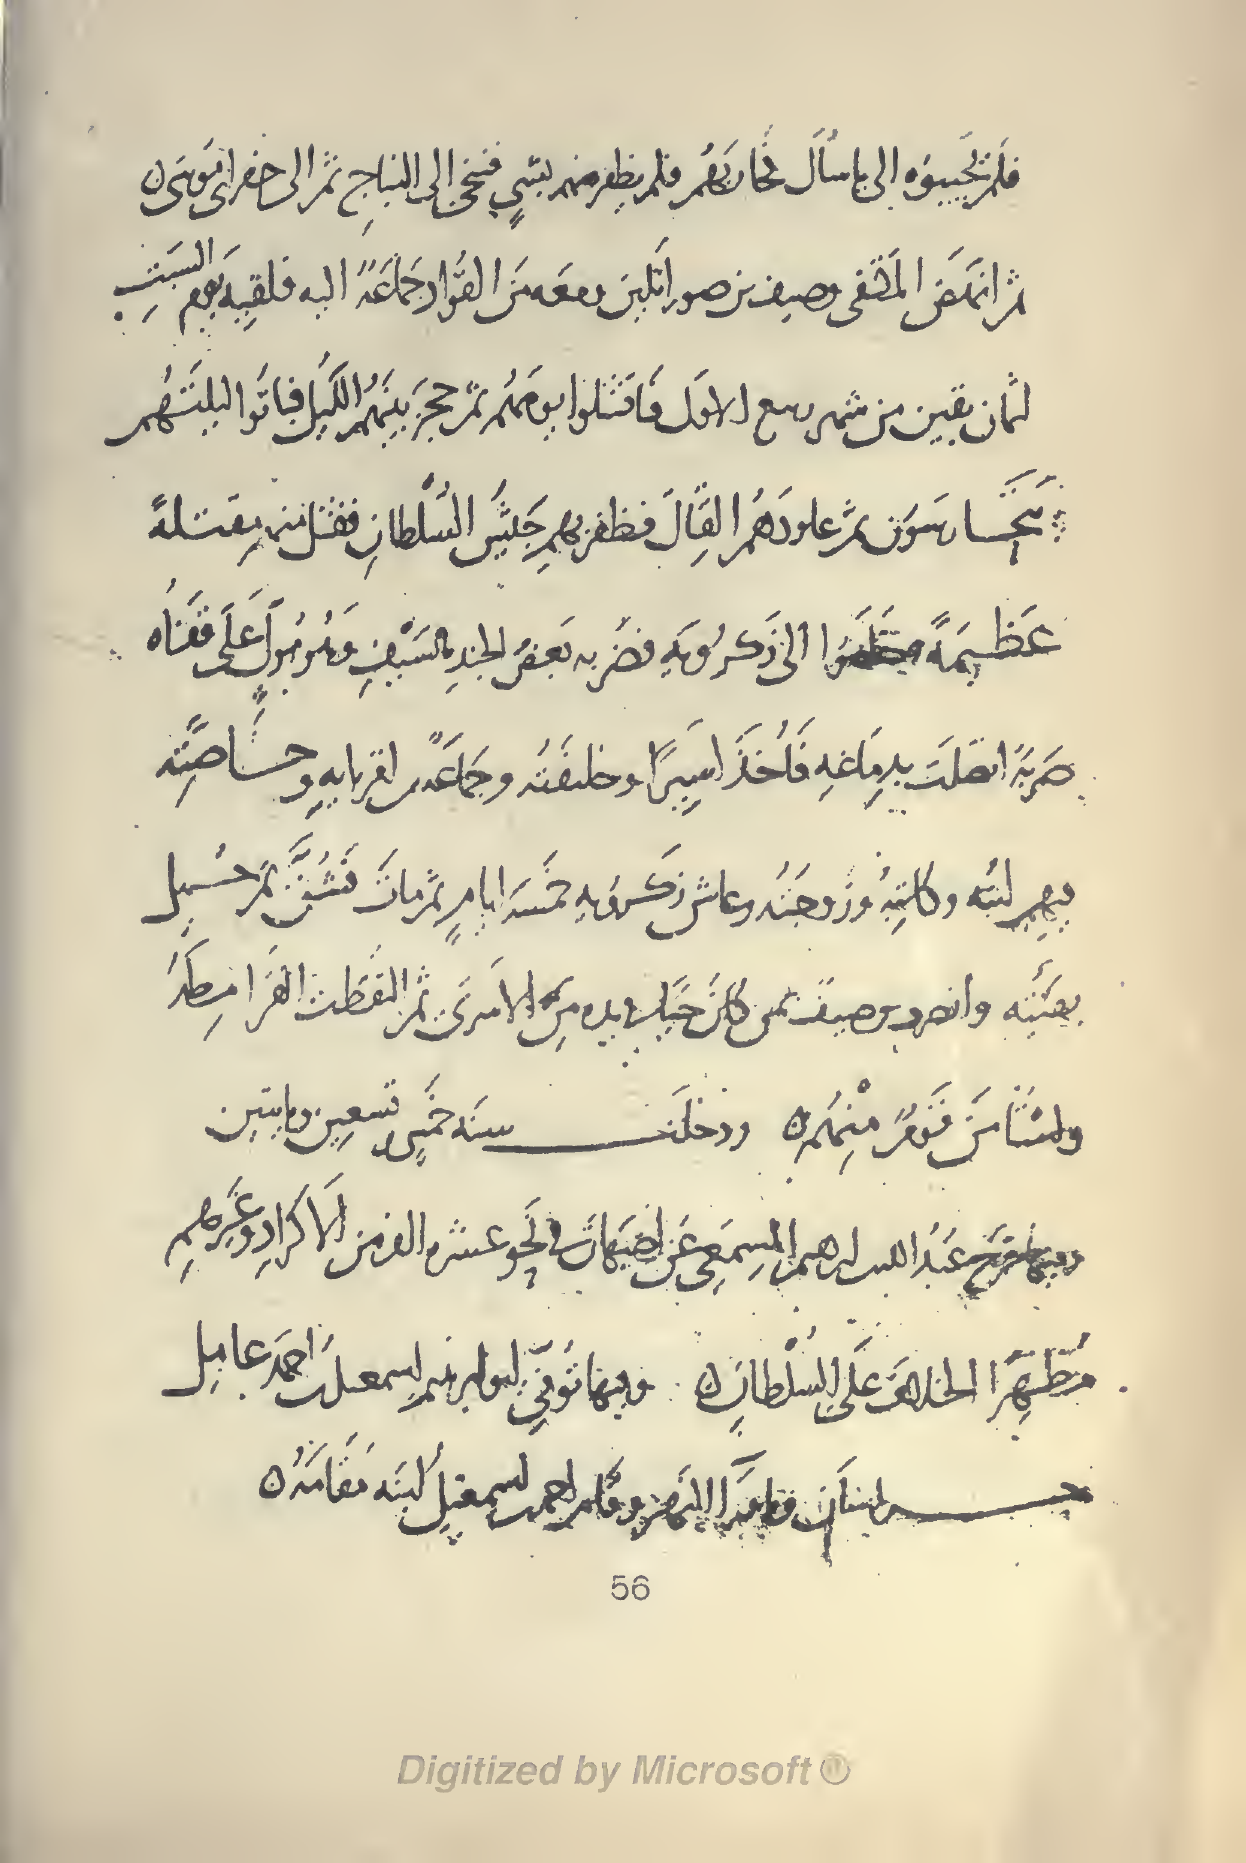 فلم يجيبوه الى ما سأل فحاربهم فلم يظفر منهم بشيٍ فتنحى الى النباجِ ثم الى حفر ابى موسى ه
ثم انهَض المكتفى وصيف بن صوراتكين ومعه مِنَ القوّاد جَماعَةً اليه فلقِيه يَوم السَبتِ
لثمان بقين من شهر ربيع الاوَل فَاقتتلوا يومَهُم ثم حجزَ بينَهُم اللَيلُ فباتوا ليلتَهُم
يَتَحَارسَون ثم عاودَهُم القِتالَ فظفر بهم جَيْشُ السُلْطانِ فقتل منهم مقتلةً
عَظيمَةً وخلَصُوا الى ذَكرُويَهِ فضَربه بَعضُ الجندِ بالسَيْفِ وَهُو مُولٍّ عَلَى قفَاه
ضَربَةً اتصَلَت بدِمَاغِهِ فَأُخذَ اسِيرًا وخليفَتُه وجَمَاعَةٌ من اقربايهِ وخاصّتِه
فيهم ابنُه وكاتِبُهُ وزوجَتُه وعاش ذكرُويه خمْسَة ايامٍ ثم ماتَ فشُقَّ ثم حُمِل
بهَيْئَتِه وانصرف وصيف بمن كانَ حَيًّا فى يده مِنَ الاسرَى ثُمّ التقطَت القرَامِطةُ
ولم يَنْتَأ مِنَ قومٌ مِنْهُم ه ودخلَت سنَه خمسٍ وتسعين ومايتين
وفيها خرج عَبْدُ الله بن ابرهيم المِسمَعِى عَن اصْبَهانَ فى نَحو عشرة الف من الاكرَادِ وغَيرهم
مُظهِرًا الخلافَ عَلَى السُلْطانِ ه وفيها تُوفِّىَ ابو ابرهيم اسمعيل بن احمَد عامِل
خراسَان وما ورا النهر وقام احمد بن اسمعِيل ابنُه مَقَامَهُ ه
56
Digitized by Microsoft ®